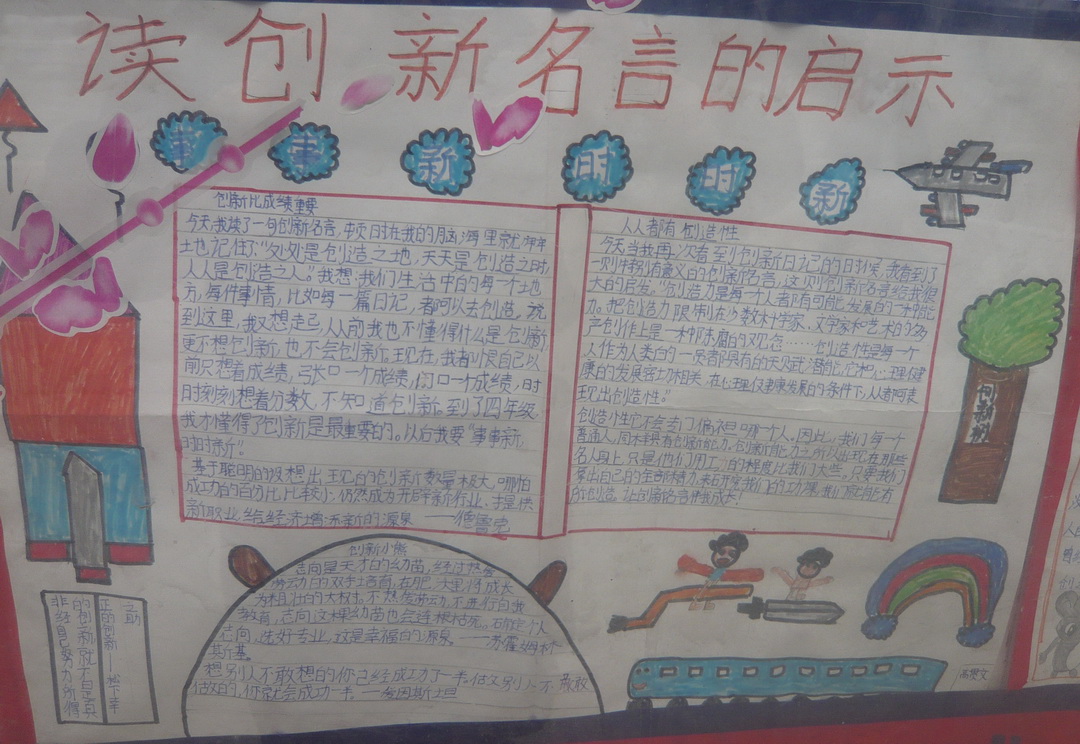 读创新名言的启示
事事新时时新
创新比成绩重要
今天,我读了一句创新名言,顿时在我的脑海里就牢牢
地记住:“处处是创造之地,天天是创造之时,
人人是创造之人。”我想:我们生活中的每一个地
方,每件事情,比如每一篇日记,都可以去创造,说
到这里,我又想起,以前我也不懂得什么是创新,
更不想创新,也不会创新,现在,我都以自己以
前只想着成绩,张口一个成绩,闭口一个成绩,时
时刻刻想着分数,不知道创新。到了四年级,
我才懂得了创新是最重要的。以后我要“事事新,
时时新”。
基于聪明的设想出现的创新数量极大,哪怕
成功的百分比比较小,仍然成为开辟新行业、
新职业,给经济增添新的源泉——德鲁克
人人都有创造性
今天当我再次看到创新日记的时候,我看到了
一则特别有意义的创新名言,这则创新名言给我很
大的启发。“创造力是每一个人都有可能发展的一种能
力。把创造力限制在少数科学家、文学家和艺术的
声创作上是一种陈腐的观念……创造性是每一个
人作为人类的一员都具有的天赋潜能,它和心理健
康的发展密切相关,在心理健康发展的条件下,人都可表
现出创造性。”
创造性它不会专门偏袒哪一个人。因此,我们每一个
普通人,同样具有创新能力。创新能力之所以出现在那些
名人身上,只是他们用工的程度比我们大些。只要我们
拿出自己的生命
所创造,让创新名言伴我成长!
创新小熊
志向是天才的幼苗,经过热爱
劳动的双手培育,在肥沃里将成长
为粗壮的大树。不热爱劳动,不进行自我
教育,志向这棵幼苗也会连根枯死。确定个人
志向,选好专业,这是幸福的源泉。——苏霍姆林
斯基
想别人不敢想的你已经成功了一半。做别人不敢
做的,你就会成功一半——爱因斯坦
非经自己努力所得
的创新就不是真
正的创新——松下幸
之助
创新树